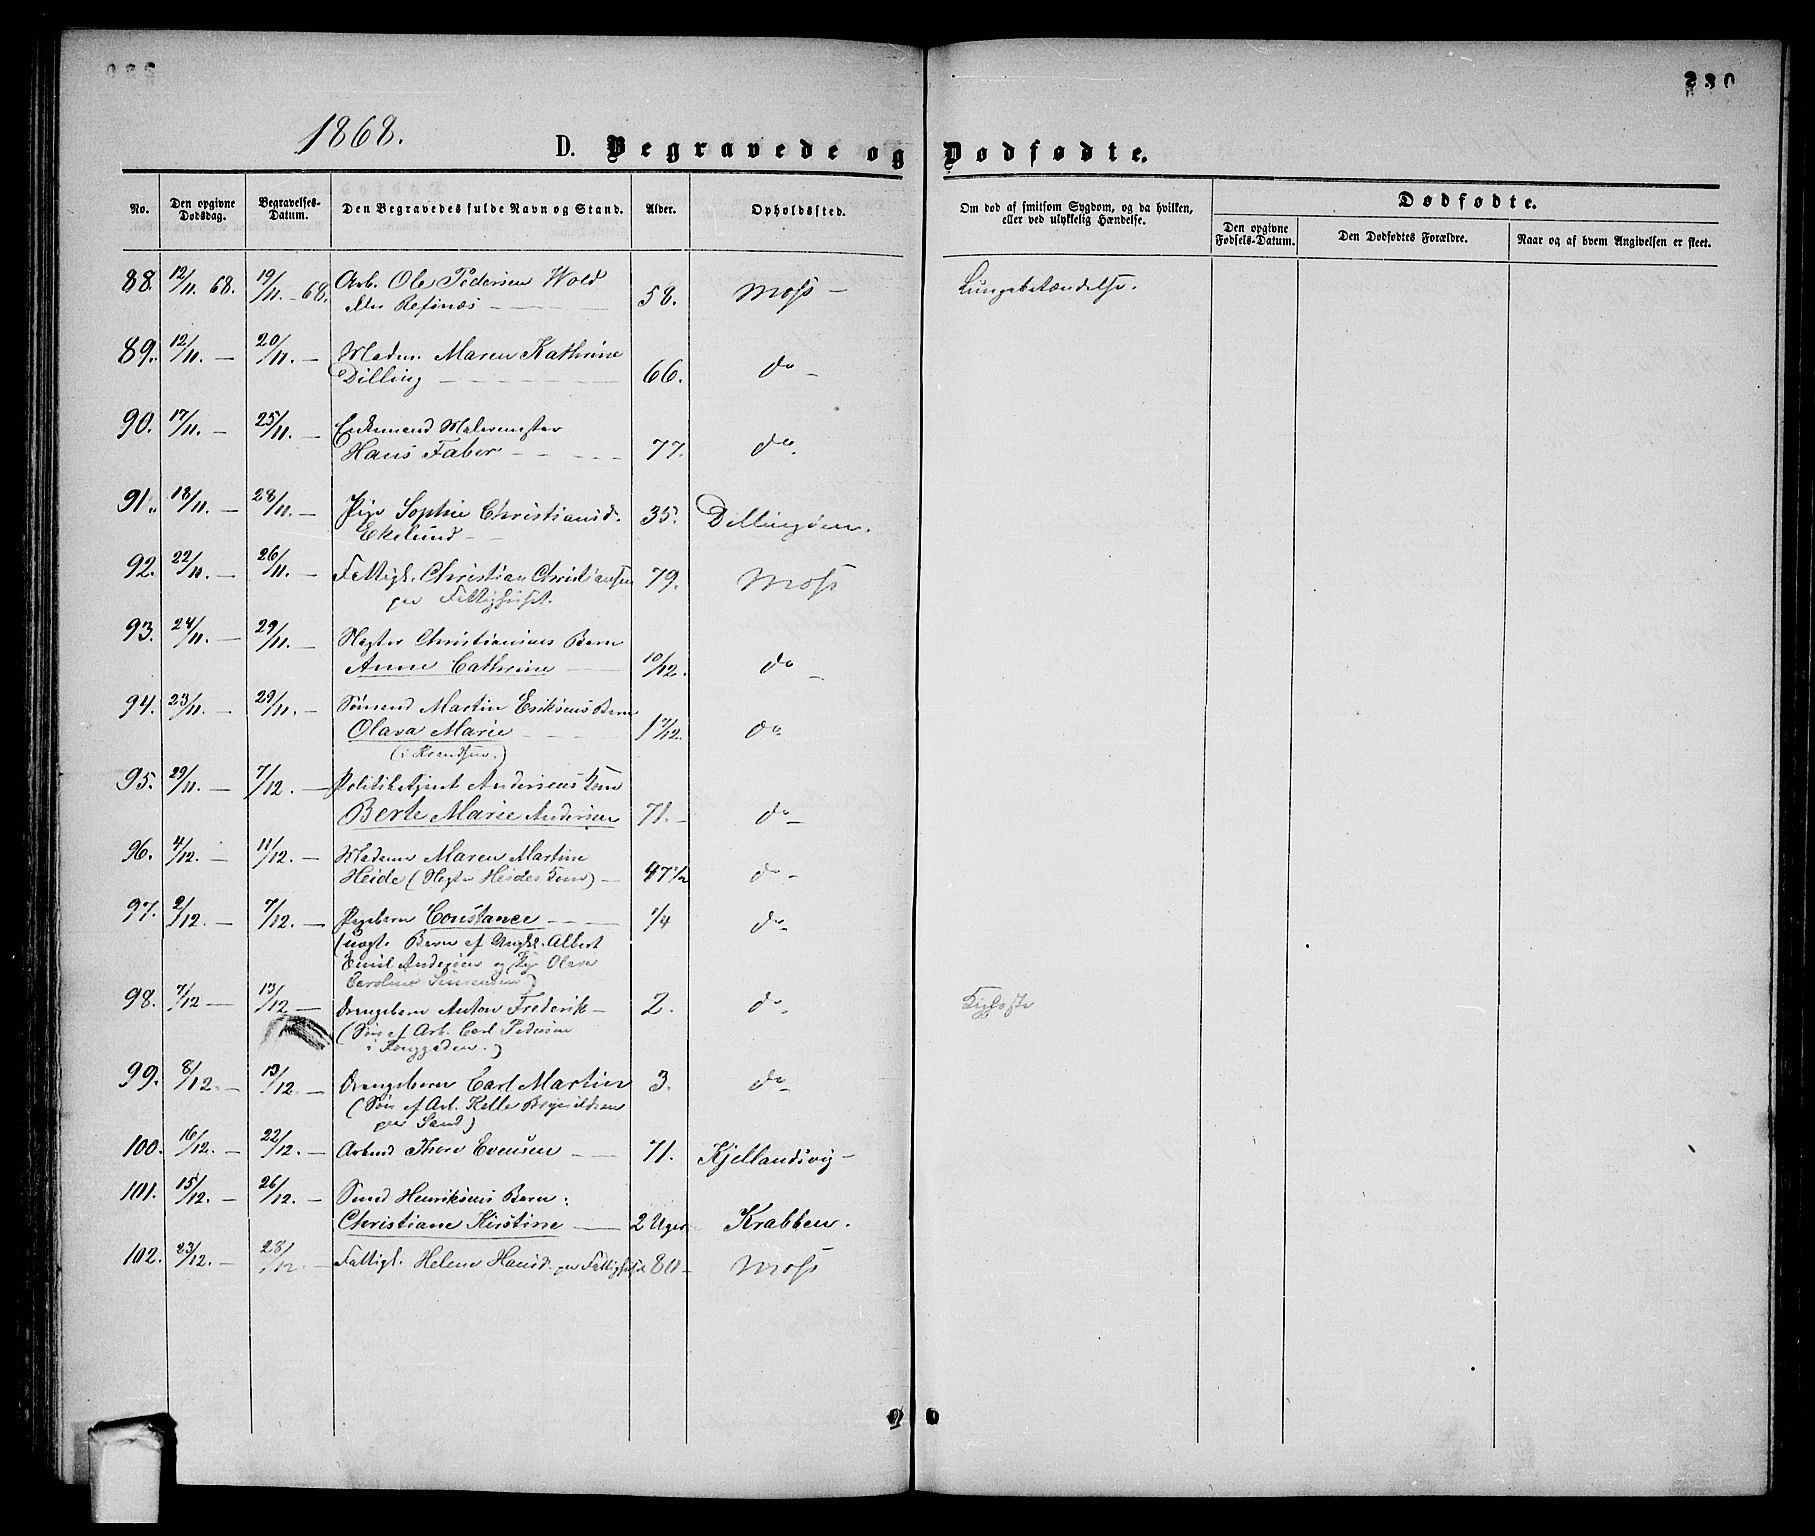 230
1868.
D. Begravede og Dødfødte.
No.
Den opgivne Dødsdag.
Begravelses-Datum.
Den Begravedes fulde Navn og Stand.
Alder.
Opholdssted.
Om død af smitsom Sygdom, og da hvilken, eller ved ulykkelig Hændelse.
Dødfødte.
Den opgivne Fødsels-Datum.
Den Dødfødtes Forældre.
Naar og af hvem Angivelsen er skeet.
88. 12/11. 68. 19/11. - 68. Arb. Ole Pedersen Wold 58. Moss - Lungebetændelse.
Refsnæs
89. 12/11. - 20/11. - Madm. Maren Kathrine
Dilling 66. do -
90. 17/11. - 25/11. - Enkemand Malermester
Hans Faber 77. do.
91. 18/11. - 28/11. - Pige Sophie Christiansd. 35. Dillingøen.
Ekelund
92. 22/11. - 26/11. - Fattigl. Christian Christiansen 79. Moss
paa Fattighuset.
93. 24/11. - 29/11. - Christiansens Barn
Anne Cathrine 10/12. do -
94. 23/11. - 29/11. - Sømand Martin Eriksens Barn
Olava Marie 1 7/12. do
95. 29/11. - 7/12. - Politibetjent Andersens Kone
Berte Marie Andersen 71. - do -
96. 4/12. - 11/12. - Madame Maren Martine
Heide ( Heides Kone) - 47 1/2 do -
97. 2/12. - 7/12. - Pigebarn Constance 1/4 do -
(uægt. Barn af Ungkl. Albert
Emil Andersen og Pig. Olava
Caroline )
98. 7/12 - 13/12 - Drengebarn Anton Frederik - 2. do. Kighoste
(Søn af Arb. Carl Pedersen
i )
99. 8/12. - 13/12. - Drengebarn Carl Martin 3. do -
(Søn af Arb. Kelle Brynildsen
paa Sand)
100. 16/12. - 22/12. - Arbmd Thore Evensen 71. Kjellandsvig -
101. 15/12. - 26/12. - Henriksens Barn:
Christiane Kirstine 2 Uger Krabben.
102. 23/12. - 28/12. - Fattigl. Helene Hansd. paa Fattighuset 80 - Moss